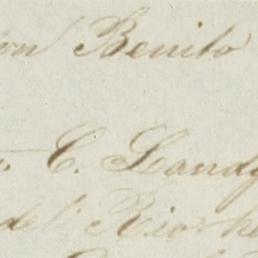 on Benito
C. Landy
del Rio he